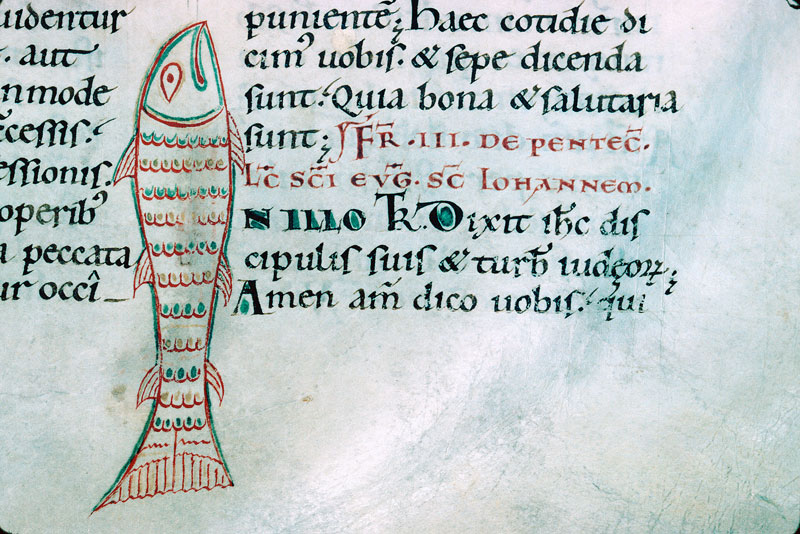 uidentur
. aut
nmode
cessis.
essionis.
operib'
a peccata
ur occî
punientē; Haec cotidie di
cim' uobis. & sepe dicenda
sunt. Quia bona & salutaria
sunt; FR̄. III. DE PENTEC̄.
LC̄ SC̄I EVḠ. SC̄ IOHANNEM.
N ILLO TR̄. Dixit ih̄c dis
cipulis suis & turb̄ iudęoꝝ;
Amen am̄ dico uobis. qui